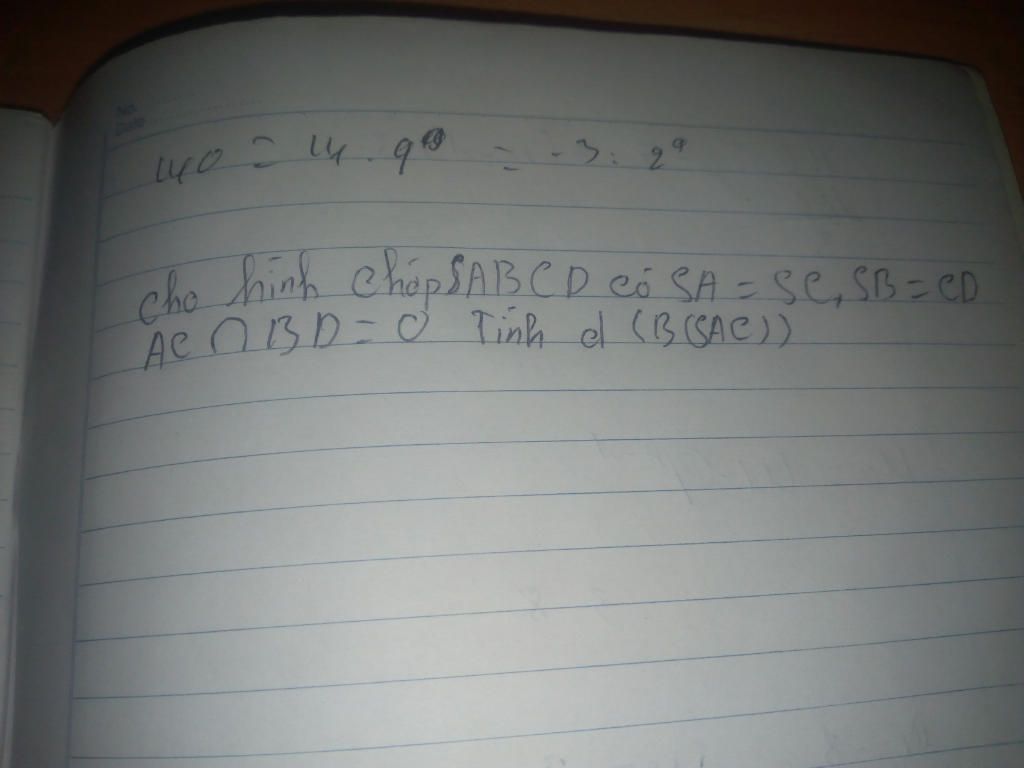 No.
Date
u10 = u1 . q⁹ = -3 . 2⁹
Cho hình chóp SABCD có SA = SC, SB = CD
AC ∩ BD = O Tính d (B(SAC))